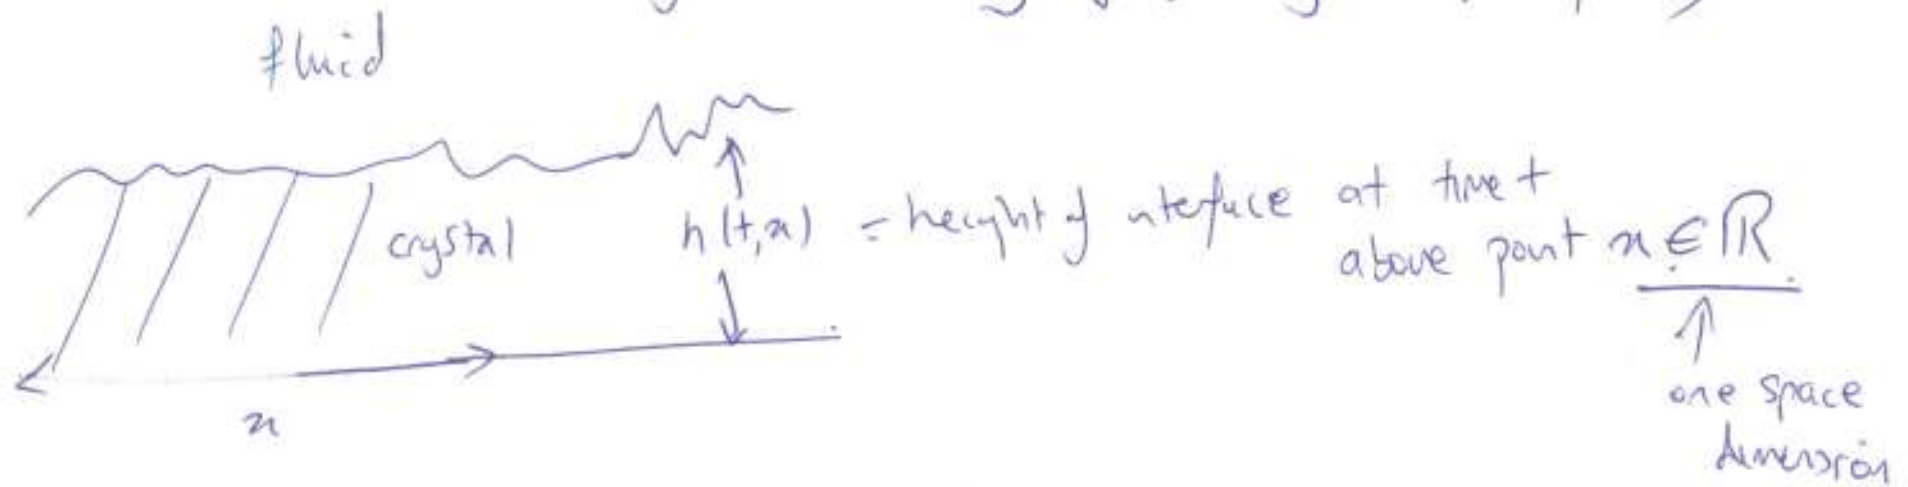 fluid
crystal
h(t,x) = height of interface at time t
above point x ∈ ℝ
one space
dimension
x